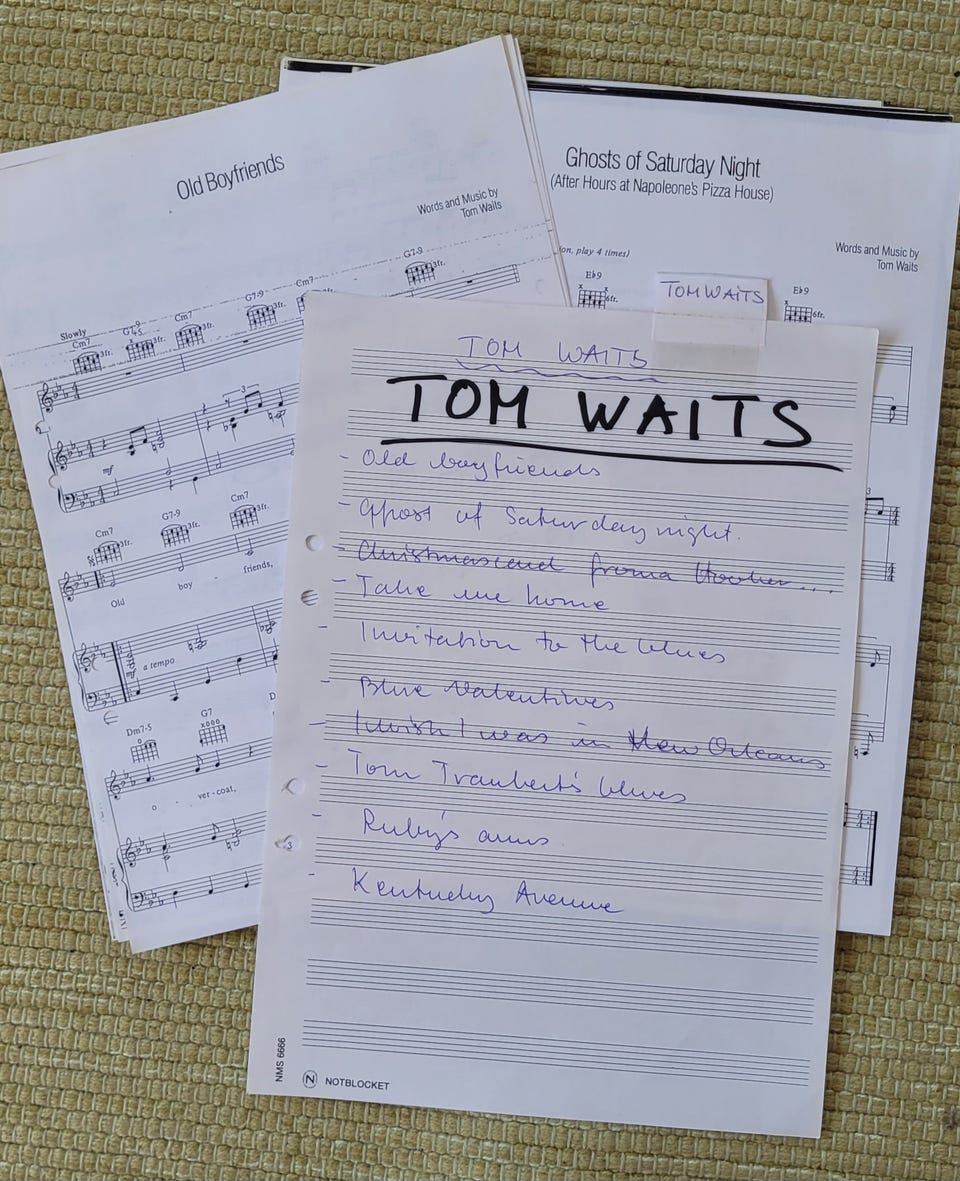 Old Boyfriends
Words and Music by
Tom Waits
Slowly
Cm7 3fr.
G7-9
+5 3fr.
Cm7 3fr.
G7-9 3fr.
Cm7
G7-9 3fr.
mf
3
Cm7 3fr.
G7-9 3fr.
Cm7 3fr.
Old boy friends,
a tempo
mf
Dm7-5
G7
o ver-coat,
Ghosts of Saturday Night
(After Hours at Napoleone's Pizza House)
Words and Music by
Tom Waits
play 4 times)
Eb9
6fr.
Eb9
6fr.
3
TOM WAITS
TOM WAITS
TOM WAITS
- Old boyfriends
- Ghost of Saturday night.
- Christmascard from a Hooker...
- Take me home
- Invitation to the blues
- Blue Valentines
- I wish I was in New Orleans
- Tom Traubert's blues
- Ruby's arms
- Kentucky Avenue
3
NMS 6666
N NOTBLOCKET